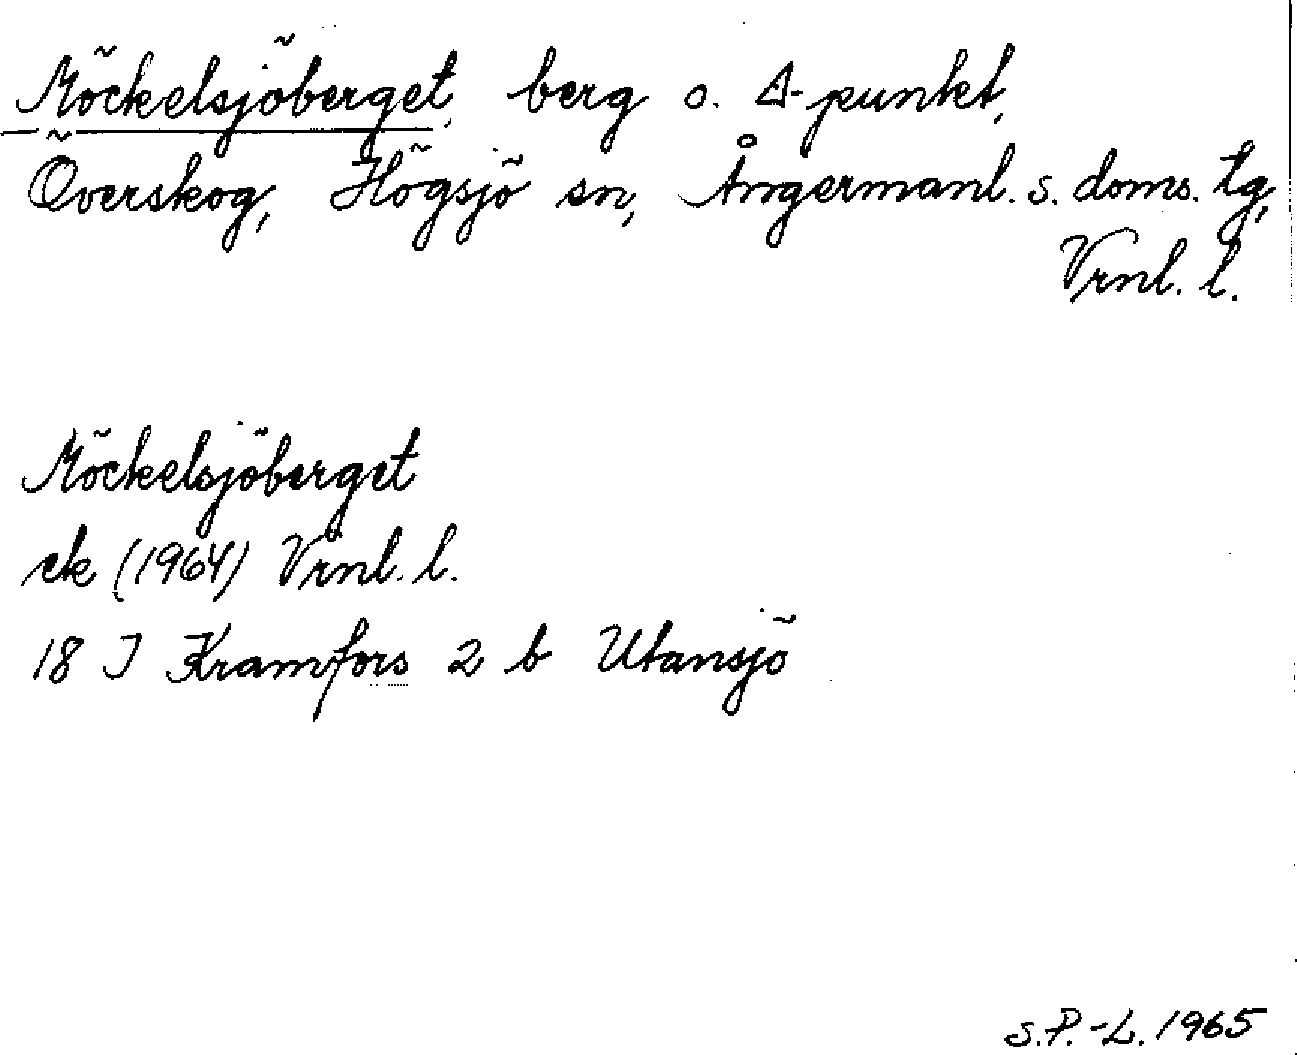 Möckelsjöberget, berg o. Δ-punkt,
Överskog, Högsjö sn, Ångermanl. s. doms. tg,
Vrnl. l.
Möckelsjöberget
ek (1964) Vrnl. l.
18 I Kramfors 2 b Utansjö
S.P.-L. 1965